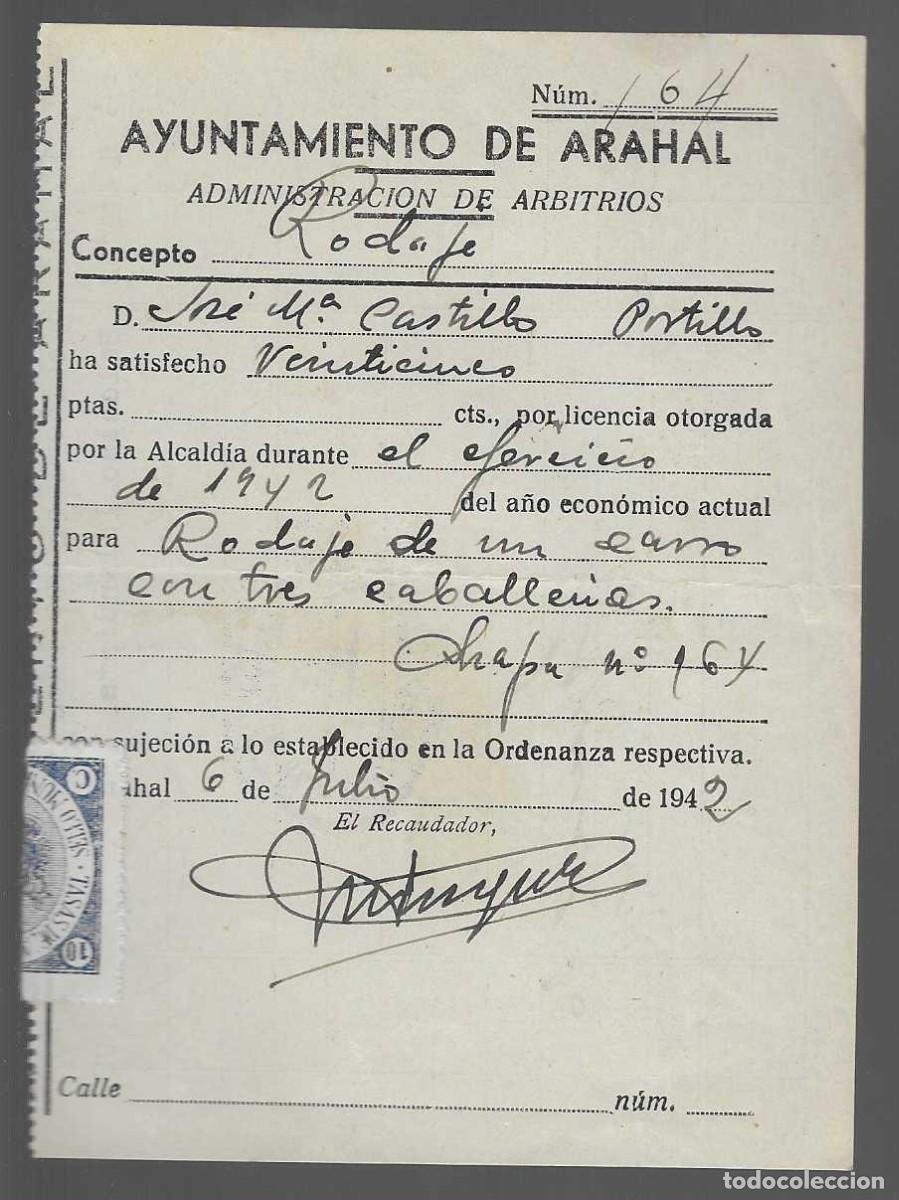 Núm. 164
AYUNTAMIENTO DE ARAHAL
ADMINISTRACION DE ARBITRIOS
Concepto Rodaje
D. José Mª Castillo Portillo
ha satisfecho Veinticinco
ptas. cts., por licencia otorgada
por la Alcaldía durante el ejercicio
de 1942 del año económico actual
para Rodaje de un carro
con tres caballerias.
Chapa nº 164
con sujeción a lo establecido en la Ordenanza respectiva.
ahal 6 de Julio de 1942
El Recaudador,
Calle núm.
C
SELLO MUN
TASAS
10
todocoleccion